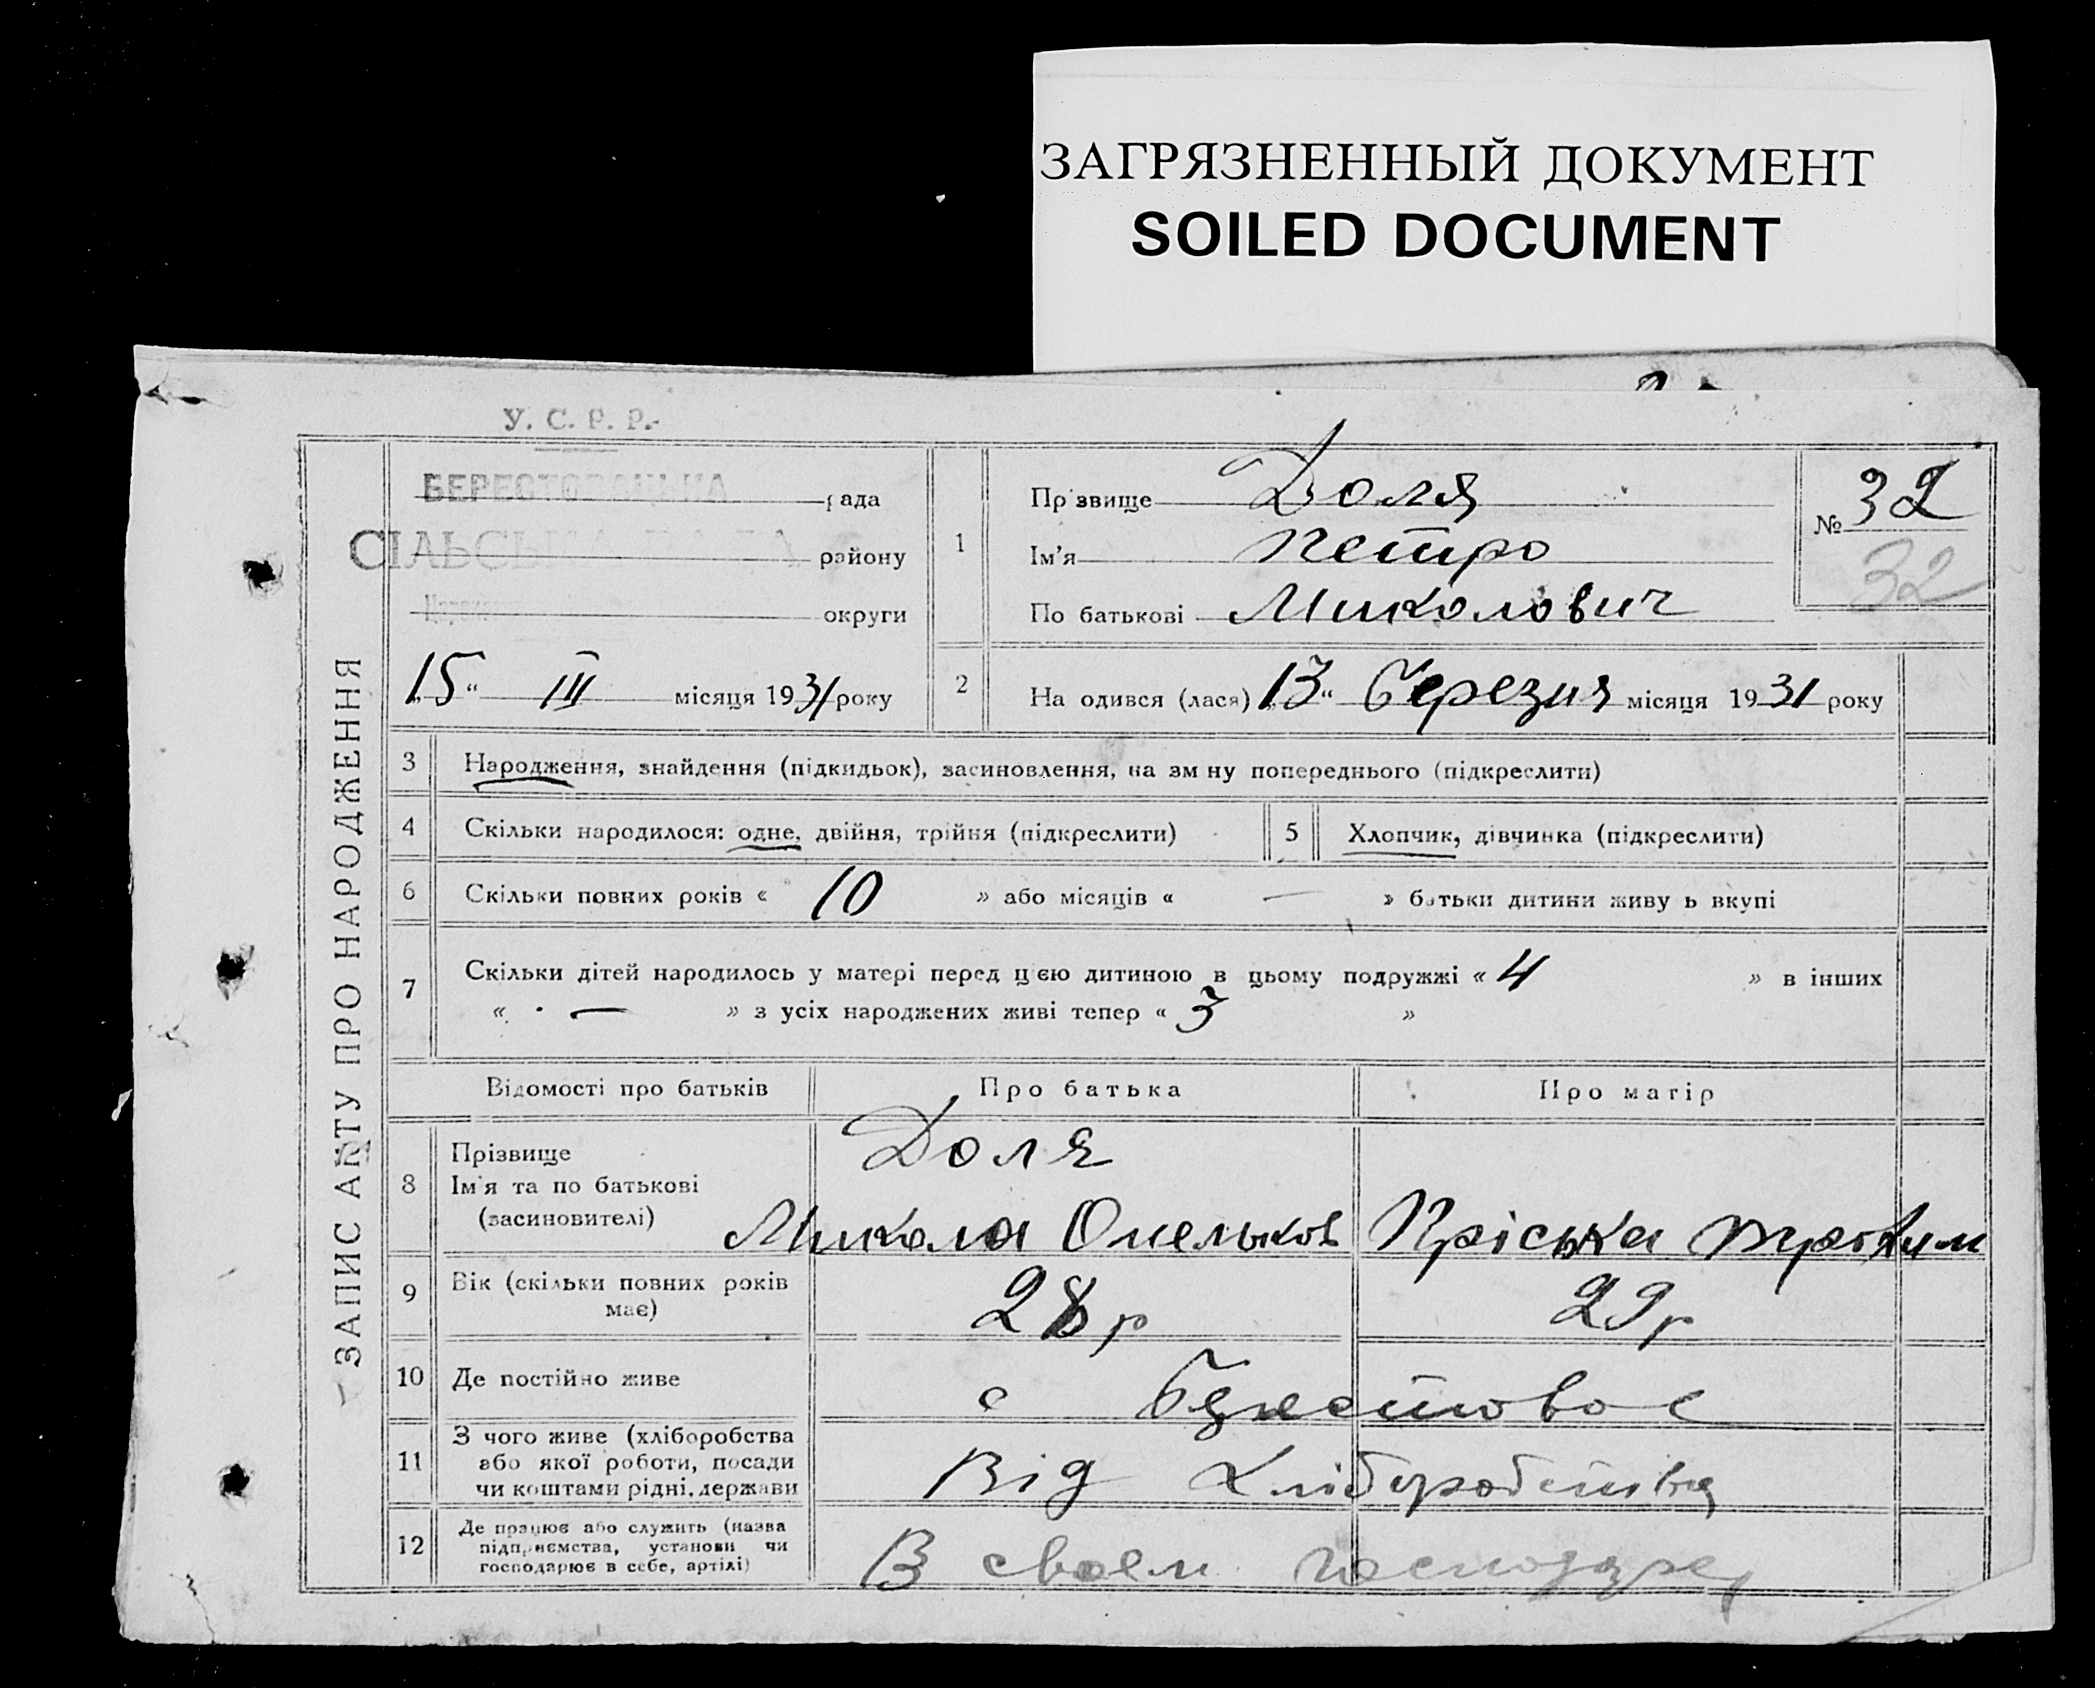 ЗАГРЯЗНЕННЫЙ ДОКУМЕНТ
SOILED DOCUMENT
У. С. Р. Р.
ЗАПИС АКТУ ПРО НАРОДЖЕННЯ
рада
СІЛЬСЬКА РАДА району
округи
„15“ III місяця 1931 року
1 Прізвище Доля
Ім'я Петро
По батькові Миколович
№ 32
32
2 На одився (лася) „13“ березня місяця 1931 року
3 Народження, знайдення (підкидьок), засиновлення, на зм ну попереднього (підкреслити)
4 Скільки народилося: одне, двійня, трійня (підкреслити) 5 Хлопчик, дівчинка (підкреслити)
6 Скільки повних років « 10 » або місяців « — » батьки дитини живу ь вкупі
7 Скільки дітей народилось у матері перед цією дитиною в цьому подружжі « 4 » в інших
« — » з усіх народжених живі тепер « 3 »
Відомості про батьків Про батька Про матір
8 Прізвище
Ім'я та по батькові
(засиновителі)
Доля
Микола Омельков Пріська Трохим
9 Вік (скільки повних років
має)
28 р 29 р
10 Де постійно живе с
11 З чого живе (хліборобства
або якої роботи, посади
чи коштами рідні, держави
Від хліборобства
12 Де працює або служить (назва
підприємства, установи чи
господарює в себе, артілі)
В своем